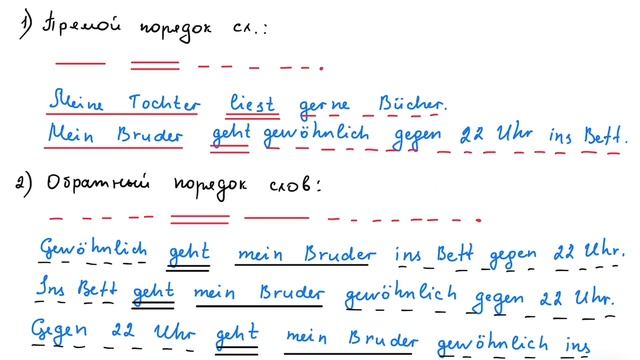 1) Прямой порядок сл.:
Meine Tochter liest gerne Bücher.
Mein Bruder geht gewöhnlich gegen 22 Uhr ins Bett.
2) Обратный порядок слов:
Gewöhnlich geht mein Bruder ins Bett gegen 22 Uhr.
Ins Bett geht mein Bruder gewöhnlich gegen 22 Uhr.
Gegen 22 Uhr geht mein Bruder gewöhnlich ins